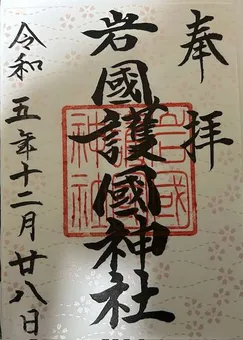 奉拝
岩國護國神社
令和五年十二月廿八日